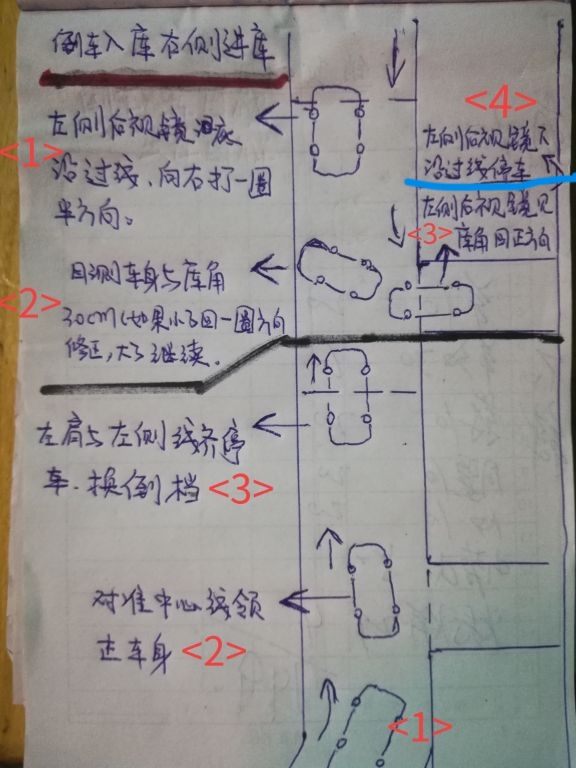 倒车入库右侧进库
左侧后视镜下底
<1>
沿过线、向右打一圈
半方向。
<4>
左侧后视镜下
沿过线停车
左侧后视镜见
<3>
库角回正方向
目测车身与库角
<2>
30cm(如果小了回一圈方向
修正,大了继续.
左肩与左侧线齐停
车.换倒挡
<3>
对准中心线领
正车身
<2>
<1>